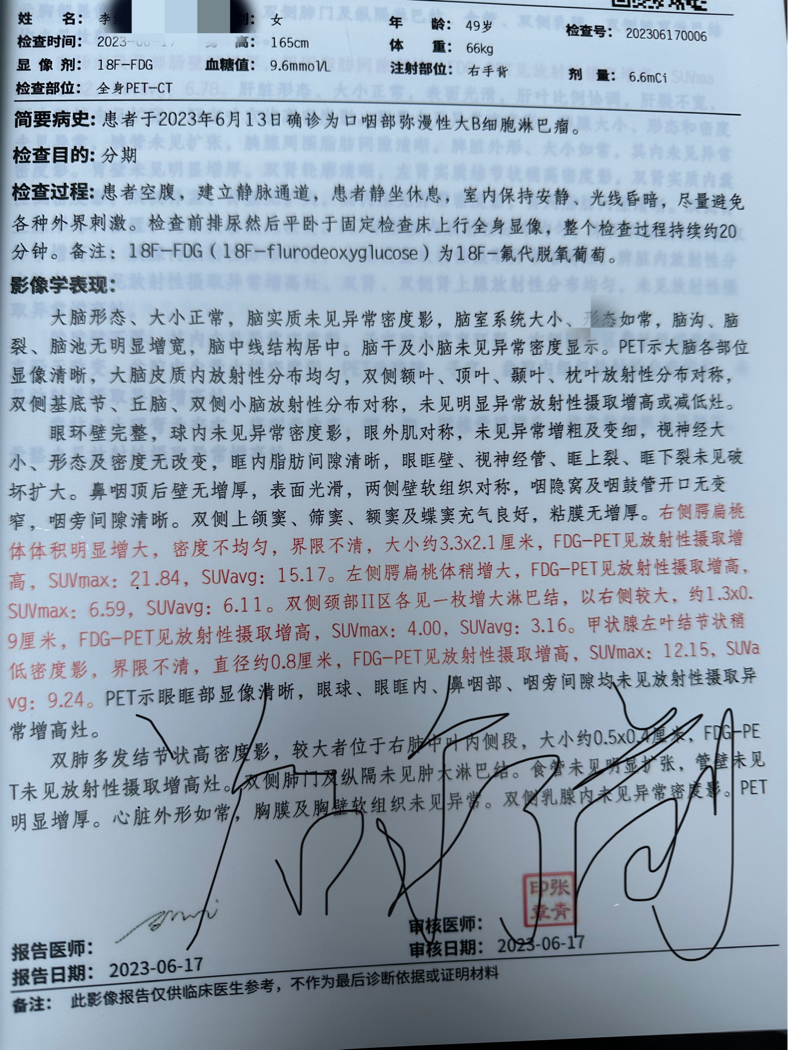 姓 名：李 女 年 龄：49岁 检查号：202306170006
检查时间：2023-06-17 身 高：165cm 体 重：66kg
显 像 剂：18F-FDG 血糖值：9.6mmol/L 注射部位：右手背 剂 量：6.6mCi
检查部位：全身PET-CT
简要病史：患者于2023年6月13日确诊为口咽部弥漫性大B细胞淋巴瘤。
检查目的：分期
检查过程：患者空腹，建立静脉通道，患者静坐休息，室内保持安静、光线昏暗，尽量避免
各种外界刺激。检查前排尿然后平卧于固定检查床上行全身显像，整个检查过程持续约20
分钟。备注：18F-FDG（18F-flurodeoxyglucose）为18F-氟代脱氧葡萄。
影像学表现：
大脑形态、大小正常，脑实质未见异常密度影，脑室系统大小、形态如常，脑沟、脑
裂、脑池无明显增宽，脑中线结构居中。脑干及小脑未见异常密度显示。PET示大脑各部位
显像清晰，大脑皮质内放射性分布均匀，双侧额叶、顶叶、颞叶、枕叶放射性分布对称，
双侧基底节、丘脑、双侧小脑放射性分布对称，未见明显异常放射性摄取增高或减低灶。
眼环壁完整，球内未见异常密度影，眼外肌对称，未见异常增粗及变细，视神经大
小、形态及密度无改变，眶内脂肪间隙清晰，眼眶壁、视神经管、眶上裂、眶下裂未见破
坏扩大。鼻咽顶后壁无增厚，表面光滑，两侧壁软组织对称，咽隐窝及咽鼓管开口无变
窄，咽旁间隙清晰。双侧上颌窦、筛窦、额窦及蝶窦充气良好，粘膜无增厚。右侧腭扁桃
体体积明显增大，密度不均匀，界限不清，大小约3.3x2.1厘米，FDG-PET见放射性摄取增
高，SUVmax：21.84，SUVavg：15.17。左侧腭扁桃体稍增大，FDG-PET见放射性摄取增高，
SUVmax：6.59，SUVavg：6.11。双侧颈部II区各见一枚增大淋巴结，以右侧较大，约1.3x0.
9厘米，FDG-PET见放射性摄取增高，SUVmax：4.00，SUVavg：3.16。甲状腺左叶结节状稍
低密度影，界限不清，直径约0.8厘米，FDG-PET见放射性摄取增高，SUVmax：12.15，SUVa
vg：9.24。PET示眼眶部显像清晰，眼球、眼眶内、鼻咽部、咽旁间隙均未见放射性摄取异
常增高灶。
双肺多发结节状高密度影，较大者位于右肺中叶内侧段，大小约0.5x0.4厘米，FDG-PE
T未见放射性摄取增高灶。双侧肺门及纵隔未见肿大淋巴结。食管未见明显扩张，管壁未见
明显增厚。心脏外形如常，胸膜及胸壁软组织未见异常。双侧乳腺内未见异常密度影。PET
报告医师： 审核医师： 张青印章
报告日期：2023-06-17 审核日期：2023-06-17
备注： 此影像报告仅供临床医生参考，不作为最后诊断依据或证明材料